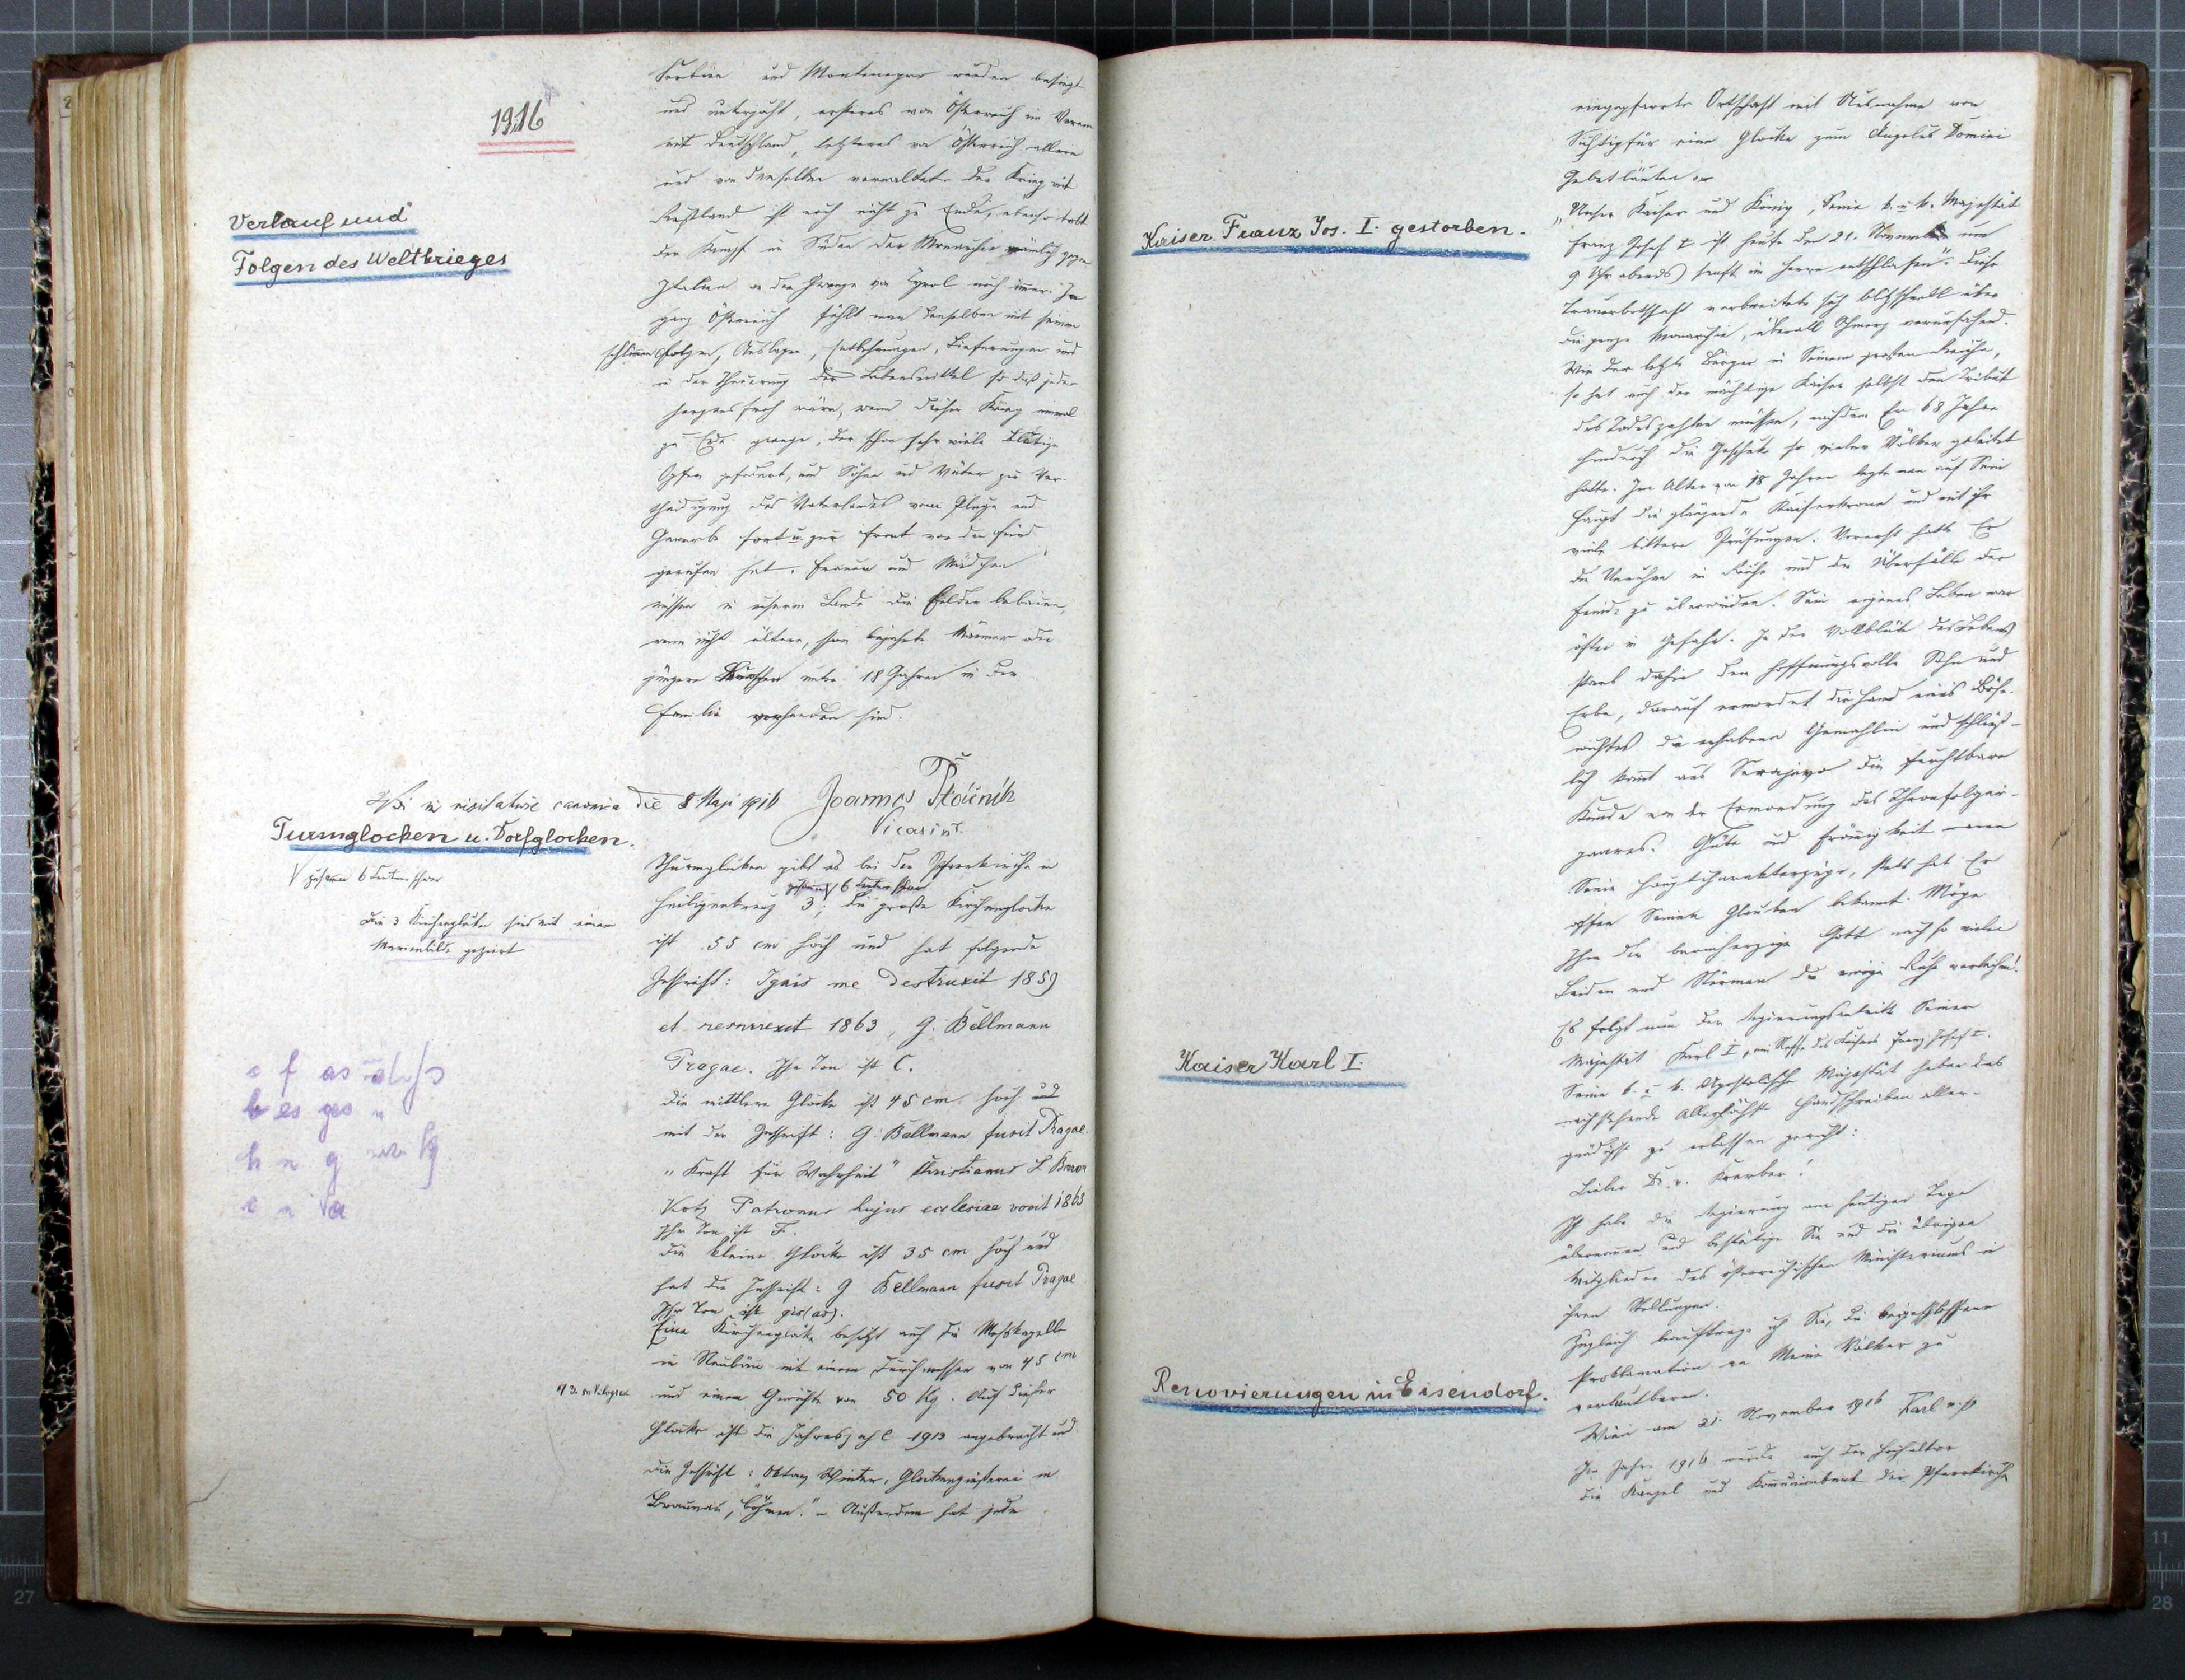 1916
Verlauf und
Folgen des Weltkrieges
Serbien und Montenegro wurden besiegt
und unterjocht, ersteres von Österreich im Verein
mit Deutschland, letzteres von Österreich allein
und von demselben verwaltet. Der Krieg mit
Rußland ist noch nicht zu Ende, ebenso tobt
der Kampf im Süden der Monarchie nämlich gegen
Italien an der Grenze von Tyrol noch immer. In
ganz Österreich fühlt man denselben mit seinen
schlimmen Folgen, Auslagen, Entbehrungen, Lieferungen und
in der Theuerung der Lebensmittel so daß jeder
herzensfroh wäre, wenn dieser Krieg einmal
zu Ende ginge, der schon sehr viele blutige
Opfer gefordert, und Söhne und Väter zur Ver-
theidigung des Vaterlandes vom Pfluge und
Gewerbe fort u. zur Front vor den Feind
gerufen hat. Frauen und Mädchen
müssen in unserem Lande die Felder bebauen,
wenn nicht ältere, schon bejahrte Männer oder
jüngere Burschen unter 18 Jahren in der
Familie vorhanden sind.
Vidi in visitatione canonica die 8 Maji 1916 Joannes
Vicarius.
Turmglocken u. Dorfglocken.
√ zusammen 6 Centner schwer
Die 3 Kirchenglocken sind mit einem
Marienbilde geziert
Thurmglocken gibt es bei der Pfarrkirche in
zusammen 6 Centner schwer
Heiligenkreuz 3; die große Kirchenglocke
ist 55 cm hoch und hat folgende
Inschrift: Ignis me destruxit 1859
et resurrexit 1863, G. Bellmann
Pragae. Ihr Ton ist C.
Die mittlere Glocke ist 45 cm hoch und
mit der Inschrift: G. Bellmann fusit Pragae.
"Kraft für Wahrheit" Christianus L. Baron
Kotz Patronus hujus ecclesiae vovit 1863
Ihr Ton ist F.
Die kleine Glocke ist 35 cm hoch und
hat die Inschrift: G Bellmann fusit Pragae
Ihr Ton ist gis (as).
Eine Kirchenglocke besitzt auch die Meßkapelle
in Neubäu mit einem Durchmesser von 45 cm
und einem Gewichte von 50 Kg. Auf dieser
Glocke ist die Jahreszahl 1913 angebracht und
die Inschrift: "Oktav Winter, Glockengießerei in
Braunau, Böhmen." – Außerdem hat jede
c f as
b es ges
h n g
c n a
eingepfarrte Ortschaft mit Ausnahme von
eine Glocke zum Angelus Domini
Gebetläuten.
Kaiser Franz Jos. I. gestorben.
"Unser Kaiser und König, Seine k. u. k. Majestät
Franz Josef I. ist heute den 21. November um
9 Uhr abends sanft im Herrn entschlafen". Diese
Trauerbotschaft verbreitete sich blitzschnell über
die ganze Monarchie, überall Schmerz verursachend.
Wie der letzte Bürger in Seinem großen Reiche,
so hat auch der mächtige Kaiser selbst den Tribut
des Todes zahlen müssen, nachdem Er 68 Jahre
hindurch die Geschicke so vieler Völker geleitet
hatte. Im Alter von 18 Jahren legte man auf Sein
Haupt die glänzende Kaiserkrone und mit ihr
viele bittere Prüfungen. Vorerst hatte Er
die Unruhen im Reiche und die Überfälle der
Feinde zu überwinden. Sein eigenes Leben war
öfter in Gefahr. In der Vollblüte des Lebens
starb dahin der hoffnungsvolle Sohn und
Erbe, darauf ermordet die Hand eines Böse-
wichtes die erhabene Gemahlin und schließ-
lich kommt aus Serajevo die furchtbare
Kunde von der Ermordung des Thronfolger-
paares. Güte und Frömmigkeit waren
Seine Hauptcharakterzüge, stets hat Er
offen Seinen Glauben bekannt. Möge
Ihm der barmherzige Gott nach so vielen
Leiden und Stürmen die ewige Ruhe verleihen!
Kaiser Karl I.
Es folgt nun der Regierungsantritt Seiner
Majestät Karl I, ein Neffe des Kaisers Franz Josef I.
Seine k. u. k. Apostolische Majestät haben das
nachstehende Allerhöchste Handschreiben aller-
gnädigst zu erlassen geruht:
Lieber Dr. v. Koerber!
Ich habe die Regierung am heutigen Tage
übernommen und bestätige Sie und die übrigen
Mitglieder des österreichischen Ministeriums in
ihren Stellungen.
Zugleich beauftrage ich Sie, die beigeschlossene
Proklamation an Meine Völker zu
verlautbaren.
Wien am 21. November 1916 Karl m. p.
Renovierungen in Eisendorf.
Im Jahre 1916 wurde auch der Hochaltar
die Kanzel und Kommunionbank der Pfarrkirche